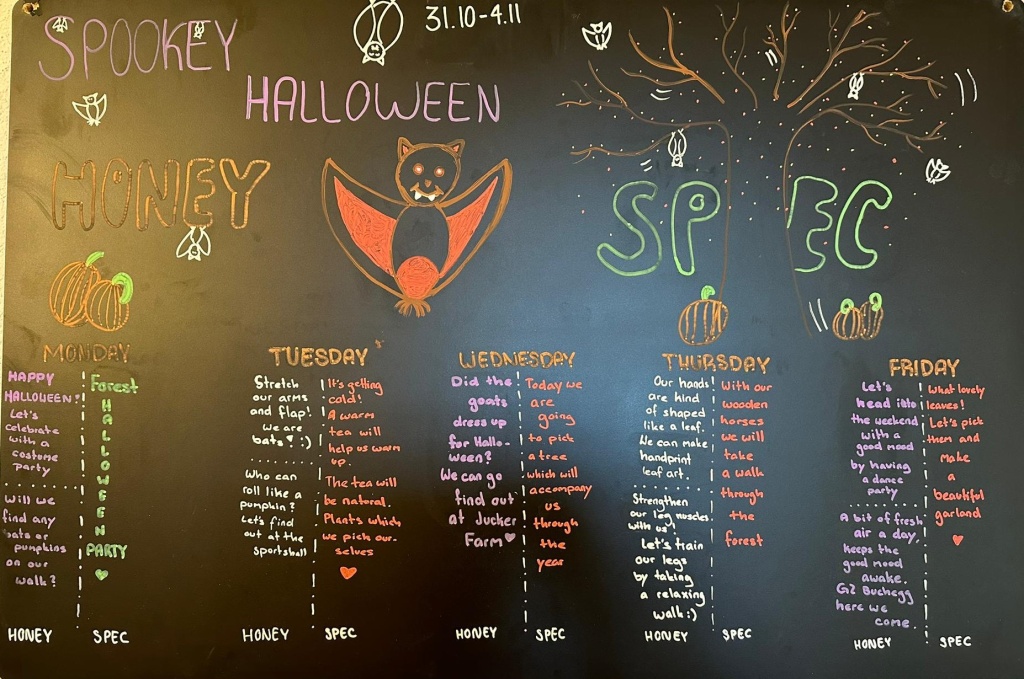 SPOOKEY
HALLOWEEN
31.10-4.11
HONEY
SPEC
MONDAY
HAPPY
HALLOWEEN!
Let's
celebrate
with a
costume
party
Will we
find any
bats or
pumpkins
on our
walk?
HONEY
Forest
H
A
L
L
O
W
E
E
N
PARTY
SPEC
TUESDAY
Stretch
our arms
and flap!
We are
bats! :)
Who can
roll like a
pumpkin?
Let's find
out at the
sportshall
HONEY
It's getting
cold!
A warm
tea will
help us warm
up.
The tea will
be natural.
Plants which
we pick our-
selves
SPEC
WEDNESDAY
Did the
goats
dress up
for Hallo-
ween?
We can go
find out
at Jucker
Farm
HONEY
Today we
are
going
to pick
a tree
which will
accompany
us
through
the
year
SPEC
THURSDAY
Our hands
are kind
of shaped
like a leaf.
We can make
handprint
leaf art.
Strengthen
our leg muscles
with us!
Let's train
our legs
by taking
a relaxing
walk :)
HONEY
With our
wooden
horses
we will
take
a walk
through
the
forest
SPEC
FRIDAY
Let's
head into
the weekend
with a
good mood
by having
a dance
party
A bit of fresh
air a day,
keeps the
good mood
awake.
GZ Buchegg
here we
come.
HONEY
What lovely
leaves!
Let's pick
them and
make
a
beautiful
garland
SPEC